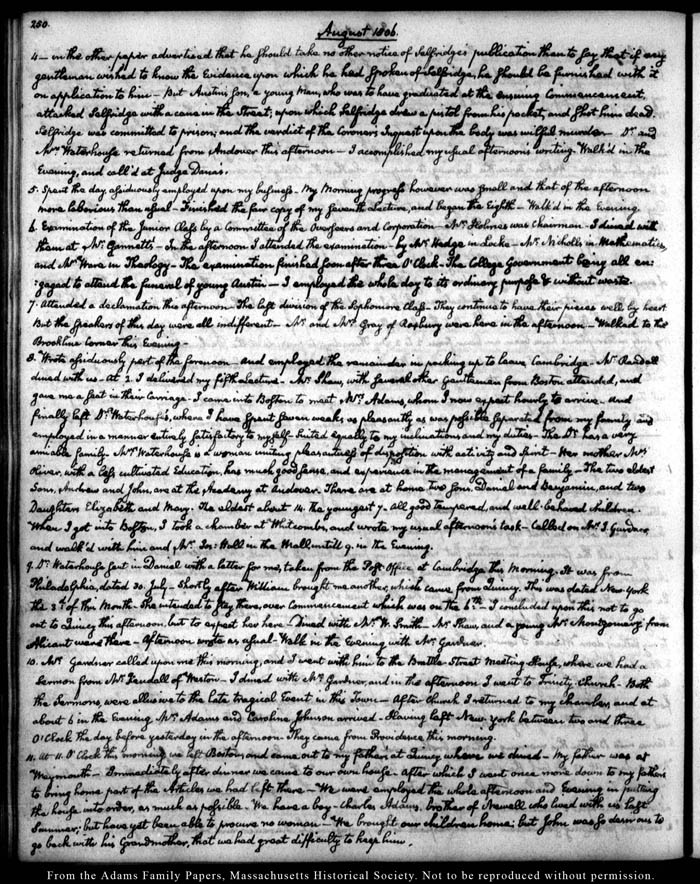 250.
August 1806.
4 — in the other paper advertised that he should take no other notice of Selfridge's publication than to say that if any
gentleman wished to know the Evidence upon which he had spoken of Selfridge, he should be furnished with it
on application to him — But Austin's Son, a young Man, who was to have graduated at the ensuing Commencement,
attacked Selfridge with a cane in the Street; upon which Selfridge drew a pistol from his pocket, and shot him dead.
Selfridge was committed to prison; and the verdict of the Coroner's Inquest upon the body was wilful murder — Dr. and
Mrs. Waterhouse returned from Andover this afternoon — I accomplished my usual afternoon's writing. Walk'd in the
Evening, and call'd at Judge Dana's.
5. Spent the day assiduously employed upon my business. My Morning progress however was small and that of the afternoon
more laborious than usual — Finished the fair copy of my seventh Lecture, and began the Eighth — Walk'd in the Evening
6. Examination of the Junior Class by a Committee of the Overseers and Corporation — Mr. Holmes was Chairman — I dined with
them at Mr. Gannett's — In the afternoon I attended the examination — by Mr. Hedge in Locke — Mr. Nichols in Mathematics,
and Mr. Ware in Theology — The examination finished soon after three O'Clock — The College Government being all en:
:gaged to attend the funeral of young Austin — I employed the whole day to its ordinary purpose & without waste.
7. Attended a declamation this afternoon — The left division of the Sophomore Class — They continue to have their pieces well by heart
But the Speakers of this day were all indifferent — Mr. and Mrs. Gray of Roxbury were here in the afternoon — Walked to the
Brookline Corner this Evening —
8. Wrote assiduously part of the forenoon — and employed the remainder in packing up to leave Cambridge — Mr. Randall
dined with us — At 2. I delivered my fifth Lecture — Mr. Shaw, with several other Gentlemen from Boston attended, and
gave me a seat in their Carriage — I came into Boston to meet Mrs. Adams, whom I now expect hourly to arrive — And
finally left Dr. Waterhouse's, where I have spent seven weeks as pleasantly as was possible separated from my family and
employed in a manner entirely satisfactory to myself — suited equally to my inclinations and my duties — The Dr. has a very
amiable family — Mrs. Waterhouse is a woman uniting pleasantness of disposition with activity and Spirit — Her mother Mrs.
Oliver, with a less cultivated Education, has much good sense, and experience in the management of a family — The two eldest
Sons, Andrew and John, are at the Academy at Andover. There are at home two Sons, Daniel and Benjamin, and two
Daughters Elizabeth and Mary. The eldest about 14. the youngest 7. All good tempered, and well-behaved children.
When I got into Boston, I took a chamber at Whitcomb's, and wrote my usual afternoon's task — Called on Mr. J. Gardner,
and walk'd with him and Mr. Jos: Hall in the Mall until 9. in the Evening.
9. Dr. Waterhouse sent in Daniel with a letter for me, taken from the Post-Office at Cambridge this Morning. It was from
Philadelphia, dated 30. July — Shortly after William brought me another, which came from Quincy. This was dated New York
the 3d. of this Month — She intended to stay there, over Commencement which was on the 6th. — I concluded upon this not to go
out to Quincy this afternoon, but to expect her here — Dined with Mr. W. Smith — Mr. Shaw, and a young Mr. Montgomery from
Alicant were there — Afternoon wrote as usual — Walk in the Evening with Mr. Gardner.
10. Mr. Gardner called upon me this morning, and I went with him to the Brattle-Street Meeting House, where we had a
Sermon from Mr. Kendall of Weston — I dined with Mr. Gardner, and in the afternoon I went to Trinity-Church — Both
the Sermons, were allusive to the late tragical Event in this Town — After Church I returned to my chamber, and at
about 6 in the Evening, Mrs. Adams and Caroline Johnson arrived — Having left New York between two and three
O'Clock the day before yesterday in the afternoon — They came from Providence this morning.
11. At 11. O'Clock this morning we left Boston, and came out to my father's at Quincy where we dined — My father was at
Weymouth — Immediately after dinner we came to our own house — After which I went once more down to my father's
to bring home part of the Articles we had left there — We were employed the whole afternoon and Evening in putting
the house into order, as much as possible — We have a boy — Charles Adams, brother of Newell who lived with us last
Summer; but have yet been able to procure no woman — We brought our children home; but John was so desirous to
go back with his Grandmother, that we had great difficulty to keep him.
From the Adams Family Papers, Massachusetts Historical Society. Not to be reproduced without permission.